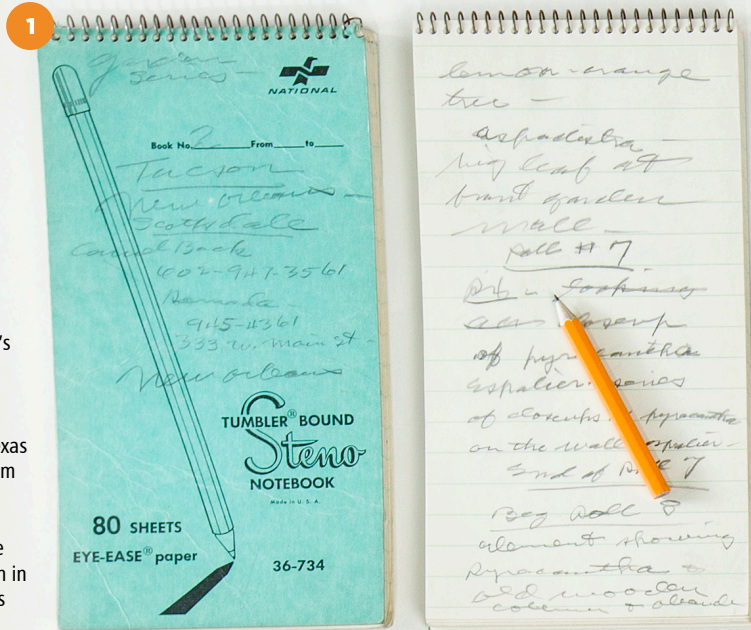 1
garden
series -
NATIONAL
Book No. 2 From to
Tucson
New Orleans -
Scottsdale
Camel Back
602-947-3561
Ramada
945-4361
333 W. Main St -
New Orleans
TUMBLER® BOUND
Steno
NOTEBOOK
Made in U. S. A.
80 SHEETS
EYE-EASE® paper
36-734
lemon-orange
tree -
aspadistra -
big leaf at
front garden
wall -
Roll #7
looking
closeup
of pyracantha
espalier series
of closeups pyracantha
on the wall espalier -
End of Roll 7
Beg Roll 8
element showing
pyracantha &
old wooden
column &
's
exas
m
e
n in
s